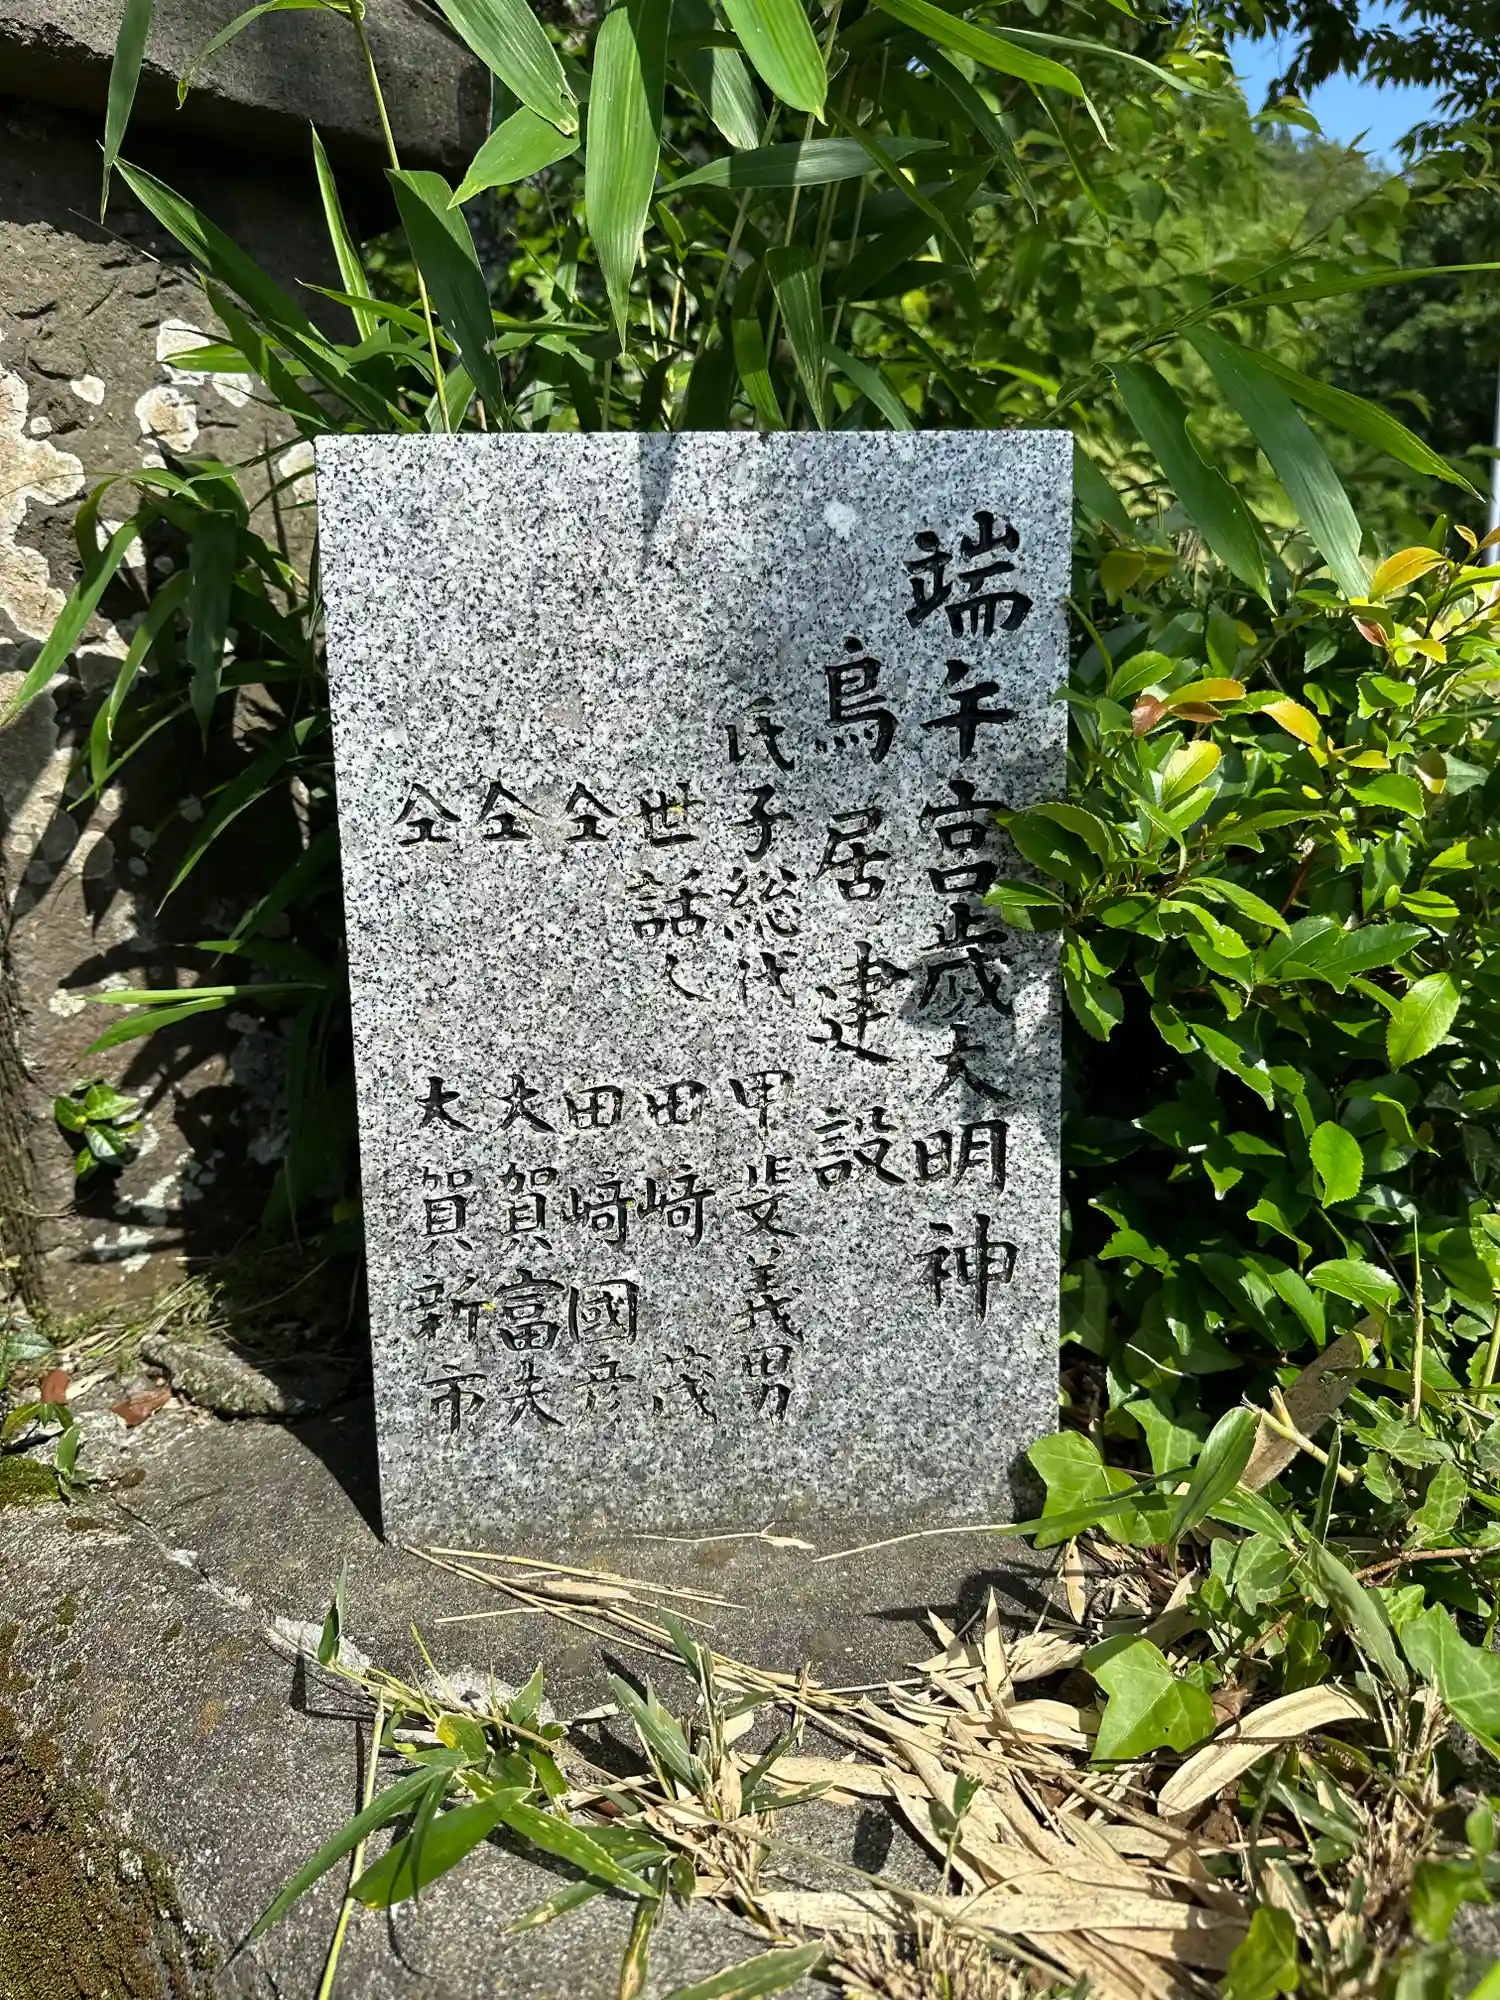 端午宮歳大明神
鳥居建設
氏子総代 甲斐義男
世話人 田﨑 茂
仝 田﨑國彦
仝 大賀富夫
仝 大賀新市